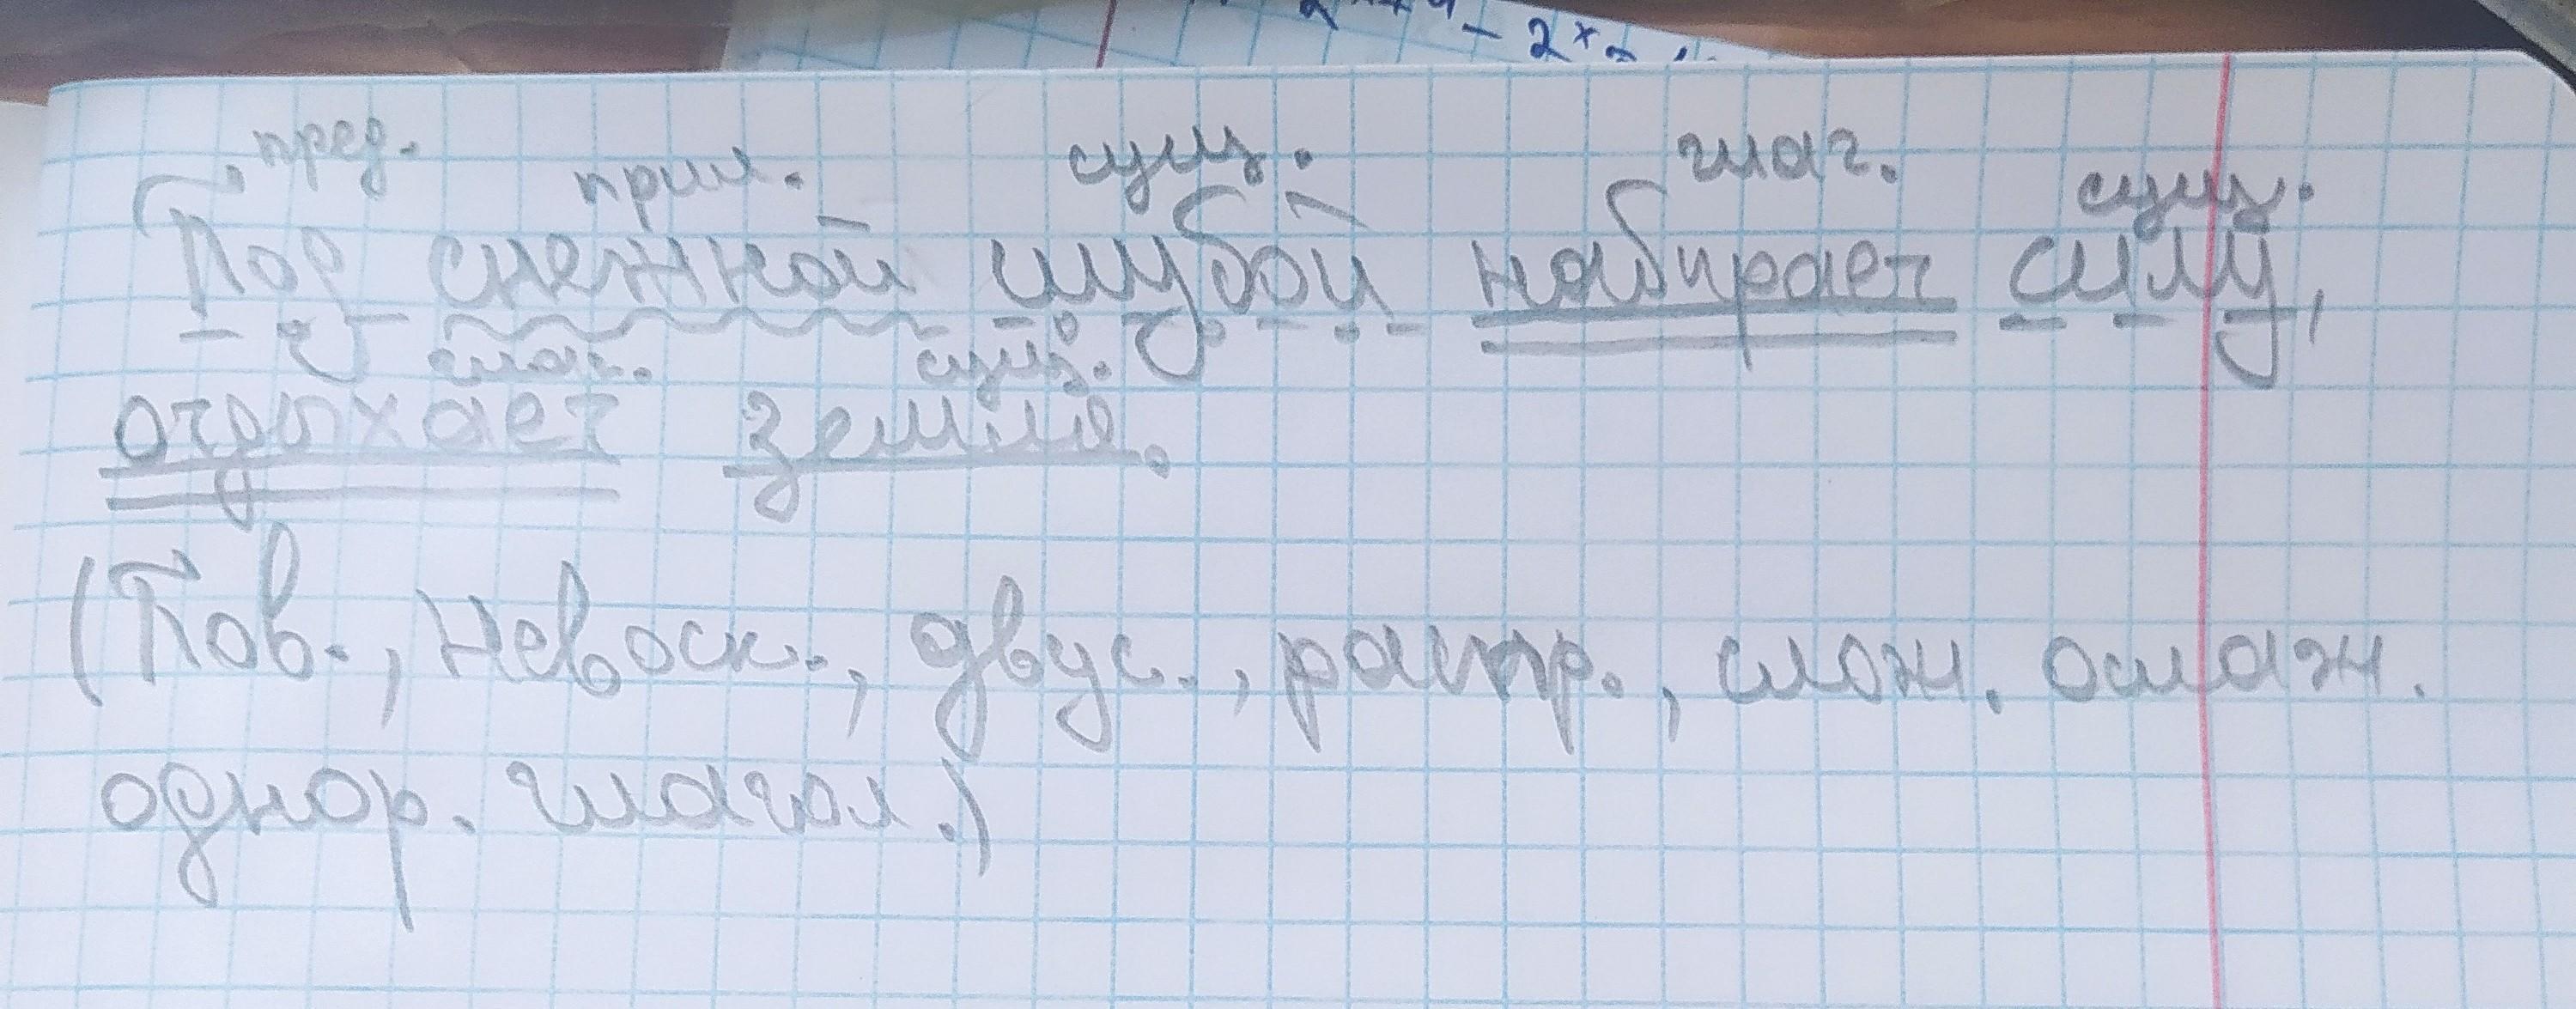 2ˣ⁺⁴ - 2ˣ
пред. прил. сущ. глаг. сущ.
Под снежной шубой набирает силу,
глаг. сущ.
отдыхает земля.
(Пов., невоск., двус., распр., слож. ослож.
однор. глагол.)